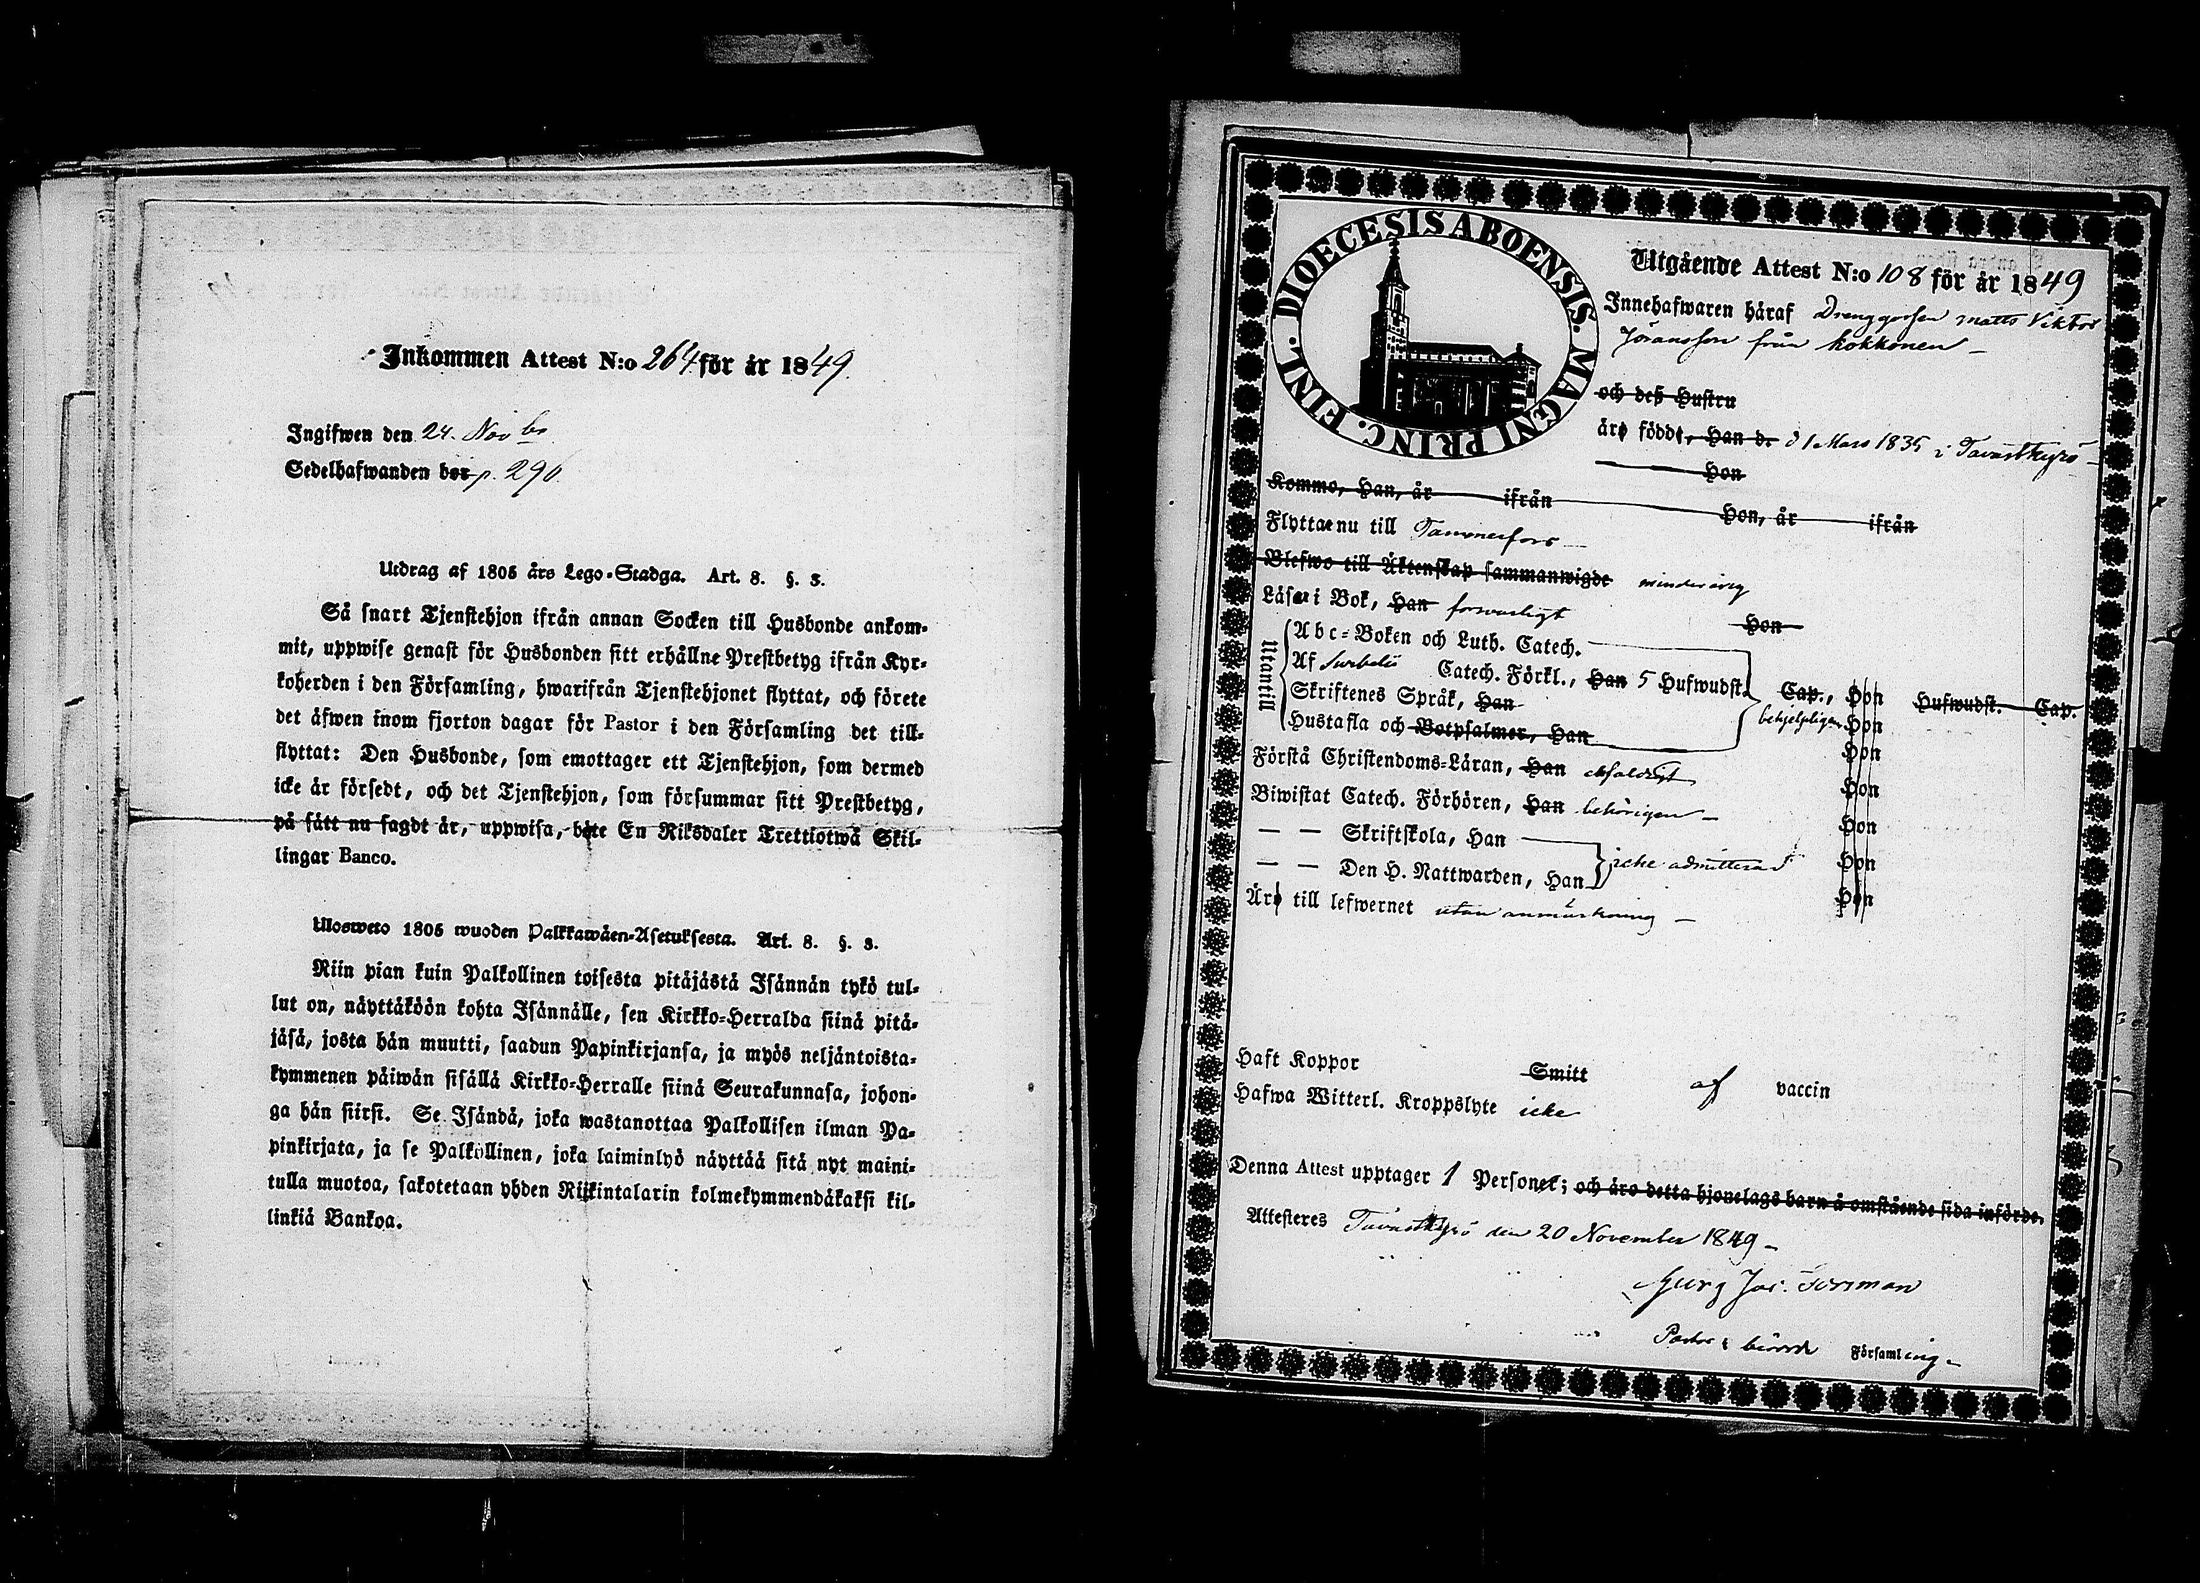 Inkommen Attest N:o 264 för år 1849.
Ingifwen den 24. Novbr
Sedelhafwanden bor p. 290
Utdrag af 1805 års Lego-Stadga. Art. 8. §. 3.
Så snart Tjenstehjon ifrån annan Socken till Husbonde ankom-
mit, uppwise genast för Husbonden sitt erhållne Prestbetyg ifrån Kyr-
koherden i den Församling, hwarifrån Tjenstehjonet flyttat, och förete
det äfwen inom fjorton dagar för Pastor i den Församling det till-
flyttat: Den Husbonde, som emottager ett Tjenstehjon, som dermed
icke är försedt, och det Tjenstehjon, som försummar sitt Prestbetyg,
på sätt nu sagdt är, uppwisa, böte En Riksdaler Trettiotwå Skil-
lingar Banco.
Ulosweto 1805 wuoden Palkkawäen-Asetuksesta. Art. 8. §. 3.
Niin pian kuin Palkollinen toisesta pitäjästä Isännän tykö tul-
lut on, näyttäköön kohta Isännälle, sen Kirkko-Herralda siinä pitä-
jäsä, josta hän muutti, saadun Papinkirjansa, ja myös neljäntoista-
kymmenen päiwän sisällä Kirkko-Herralle siinä Seurakunnasa, johon-
ga hän siirsi. Se Isändä, joka wastanottaa Palkollisen ilman Pa-
pinkirjata, ja se Palkollinen, joka laiminlyö näyttää sitä nyt maini-
tulla muotoa, sakotetaan yhden Riikintalarin kolmekymmendäkaksi kil-
linkiä Bankoa.
DIOECESIS ABOENSIS. MAGNI PRINC. FINL.
Utgående Attest N:o 108 för år 1849
Innehafwaren häraf Drenggossen Matts Viktor
Jöransson från Kokkonen
och deß Hustru
äro född, Han d. 31 Mars 1835 i Tavastkyrö
Hon
Kommo, Han, år ifrån Hon, år ifrån
Flyttar nu till Tammerfors
Blefwo till Äktenskap sammanwigde minderårig
Läser i Bok, Han forsvarligt Hon
Utantill
Abc-Boken och Luth. Catech.
Af Svebelii Catech. Förkl., Han 5 Hufwudst. Cap., Hon Hufwudst. Cap.
Skriftenes Språk, Han behjelpligen Hon
Hustafla och Botpsalmer, Han Hon
Förstå Christendoms-Läran, Han enfaldigt Hon
Biwistat Catech. Förhören, Han behörigen Hon
— — Skriftskola, Han icke admitterad Hon
— — Den H. Nattwarden, Han Hon
Äro till lefwernet utan anmärkning
Haft Koppor Smitt af vaccin
Hafwa Witterl. Kroppslyte icke
Denna Attest upptager 1 Personer; och äro detta hjonelags barn å omstående sida införde.
Attesteres Tavastkyrö den 20 November 1849
Georg Jac. Forsman
Pastor i berörde Församling